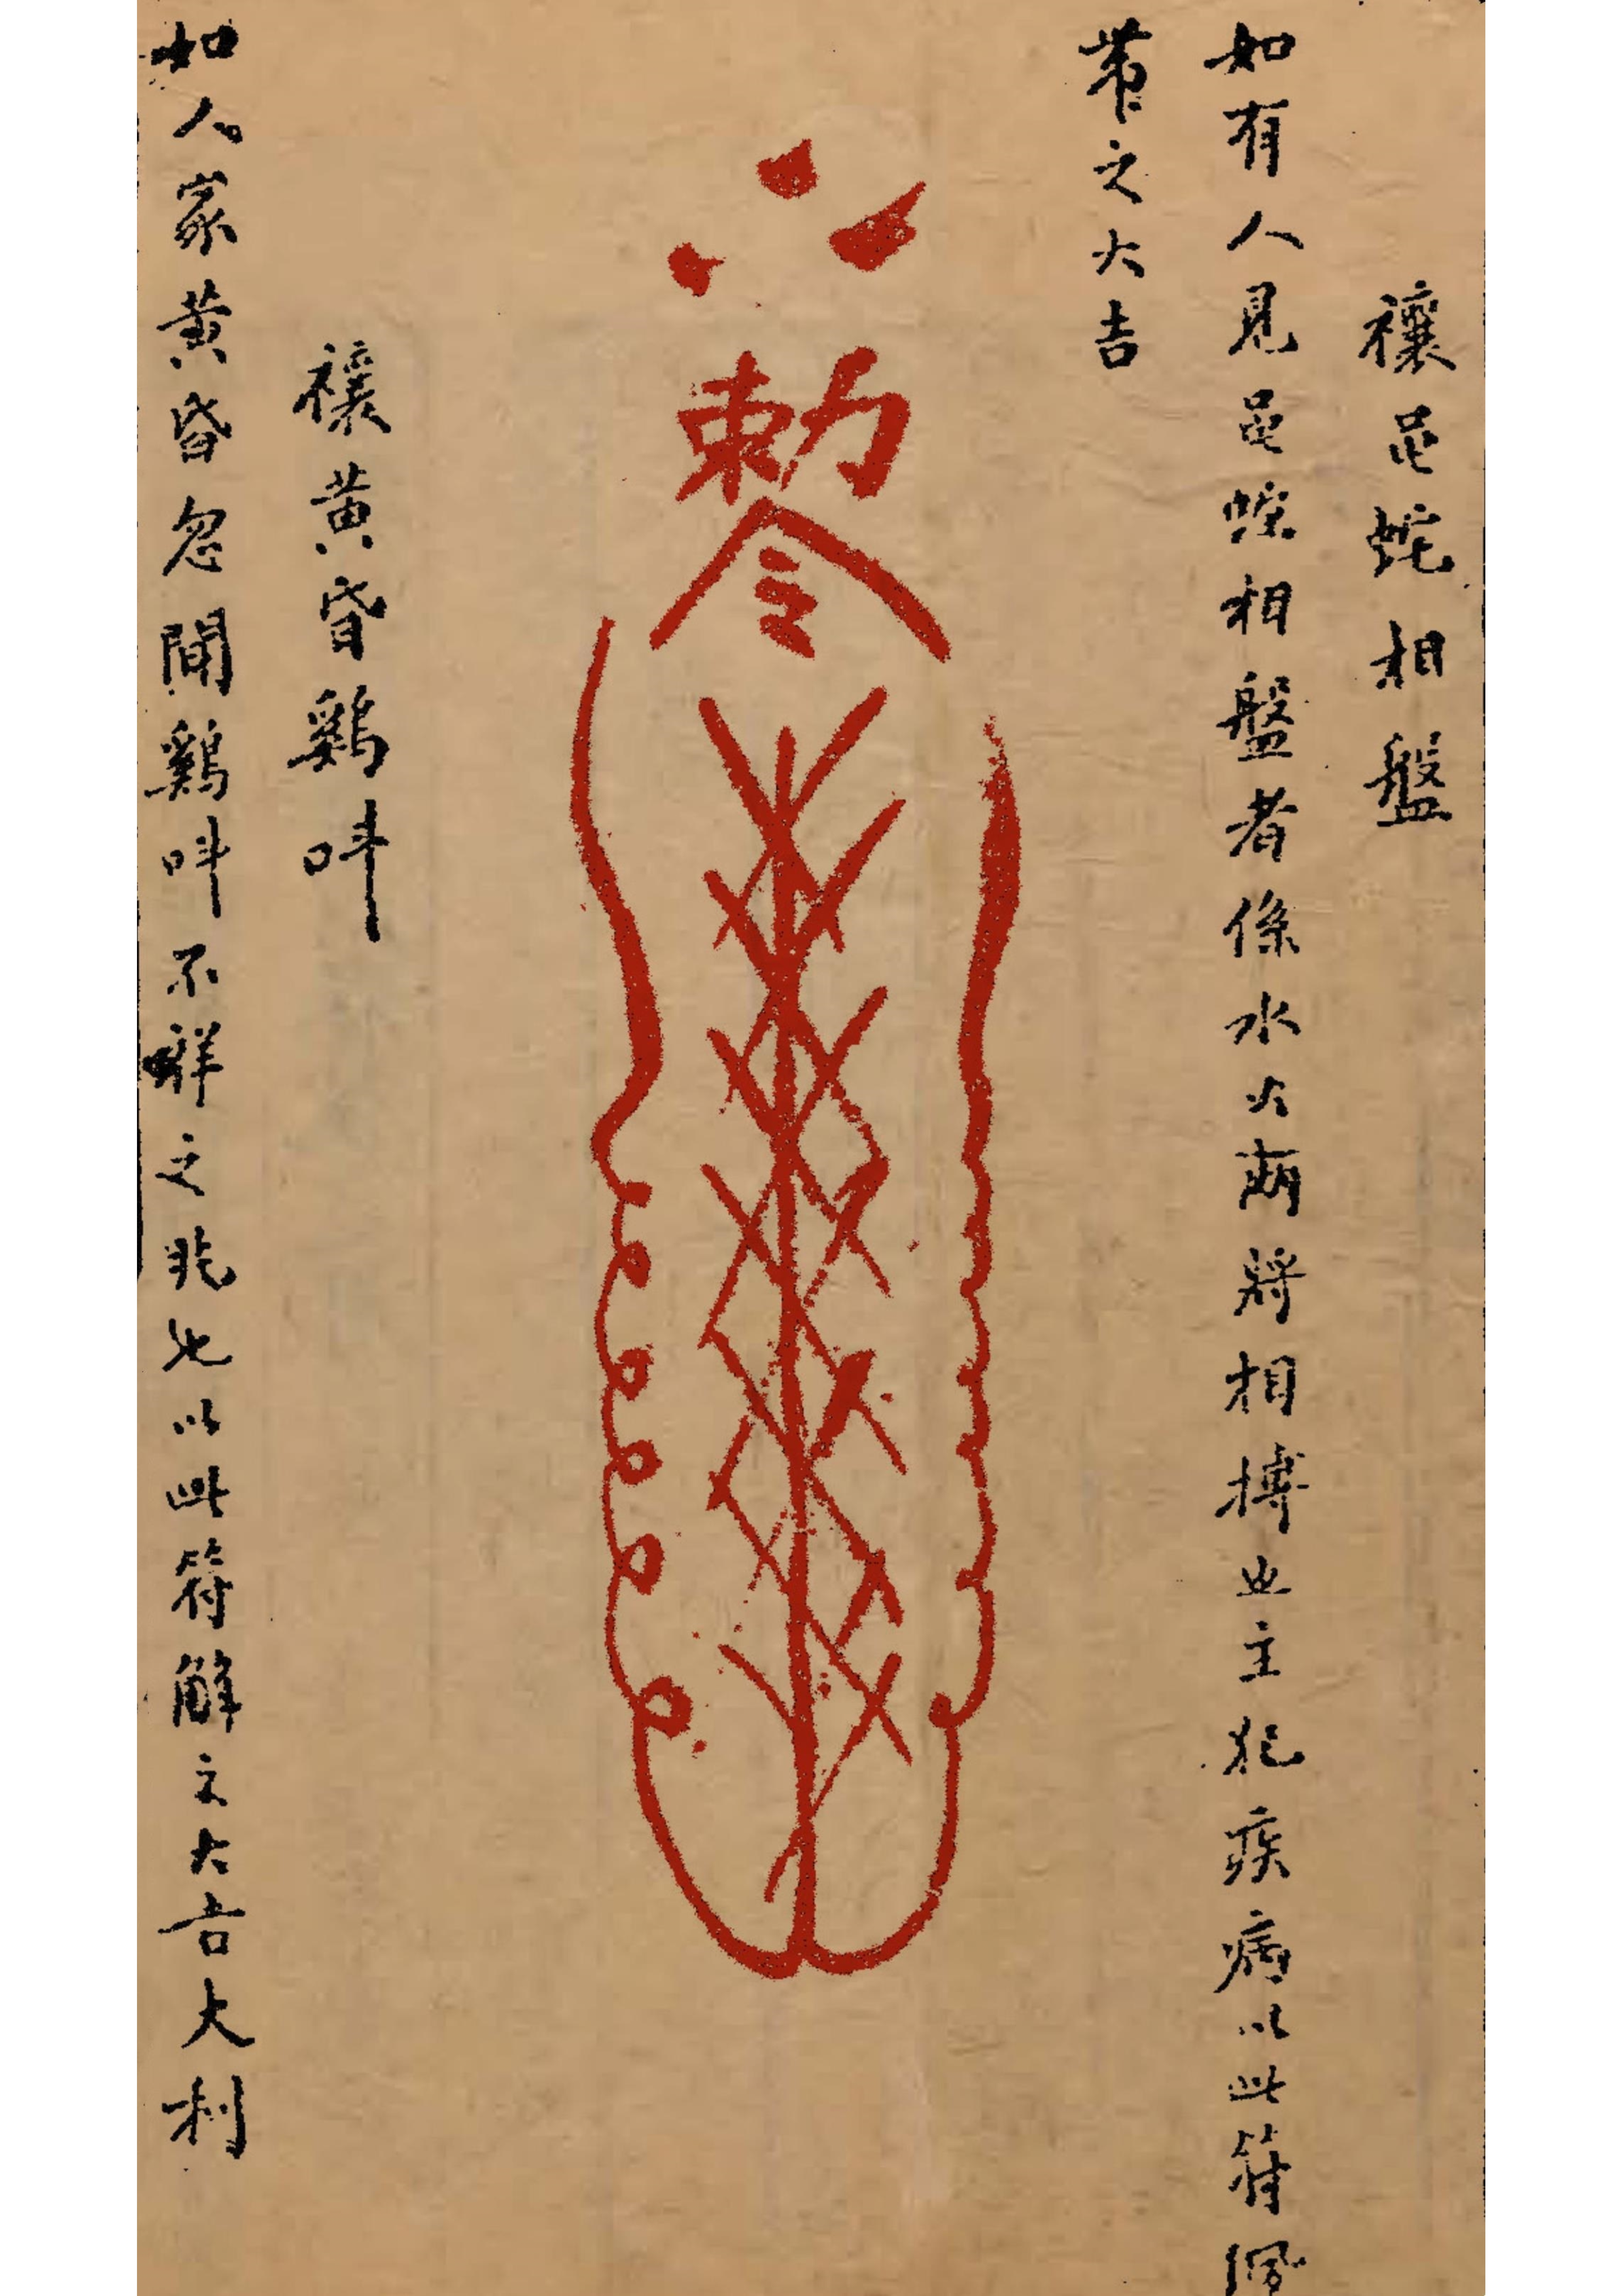 禳龟蛇相盤
如有人見龟蛇相盤者係水火兩將相搏也主犯疾病以此符佩
帶之大吉
勅令
禳黄昏鷄呌
如人家黄昏忽聞鷄呌不祥之兆也以此符解之大吉大利